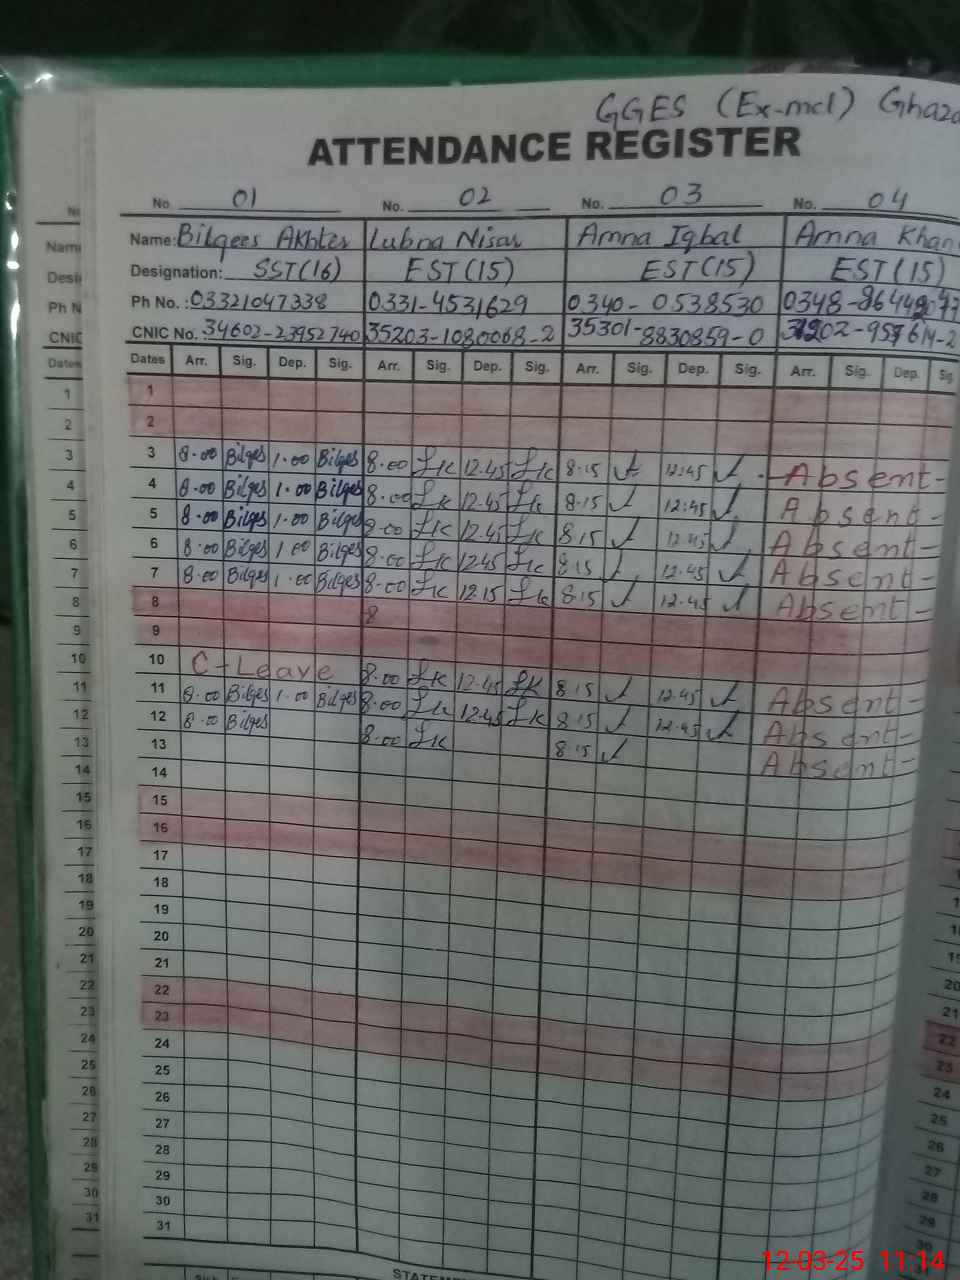 GGES (Ex-mcl)
ATTENDANCE REGISTER
No. 01 No. 02 No. 03 No. 04
Name: Bilqees Akhter Lubna Nisar Amna Iqbal Amna Khan
Designation: SST(16) EST(15) EST(15) EST(15)
Ph No.: 03321047338 0331-4531629 0340-0538530
CNIC No. 34602-23952740 35203-1080068-2 35301-8830859-0
Dates Arr. Sig. Dep. Sig. Arr. Sig. Dep. Sig. Arr. Sig. Dep. Sig. Arr. Sig. Dep. Sig.
1
2
3 8.00 Bilqes 1.00 Bilqes 8.00 Lk 12.45 Lk 8.15 12:45 Absent-
4 8.00 Bilqes 1.00 Bilqes 8.00 Lk 12.45 Lk 8.15 12:45 Absent-
5 8.00 Bilqes 1.00 Bilqes 8.00 Lk 12.45 Lk 8.15 12.45 Absent-
6 8.00 Bilqes 1.00 Bilqes 8.00 Lk 12.45 Lk 8.15 12.45 Absent-
7 8.00 Bilqes 1.00 Bilqes 8.00 Lk 12.15 Lk 8.15 12.45 Absent-
8 8
9
10 C-Leave 8.00 Lk 12.45 Lk 8.15 12.45 Absent-
11 8.00 Bilqes 1.00 Bilqes 8.00 Lk 12.45 Lk 8.15 12.45 Absent-
12 8.00 Bilqes 8.00 Lk 8.15 Absent-
13
14
15
16
17
18
19
20
21
22
23
24
25
26
27
28
29
30
31
12-03-25 11:14